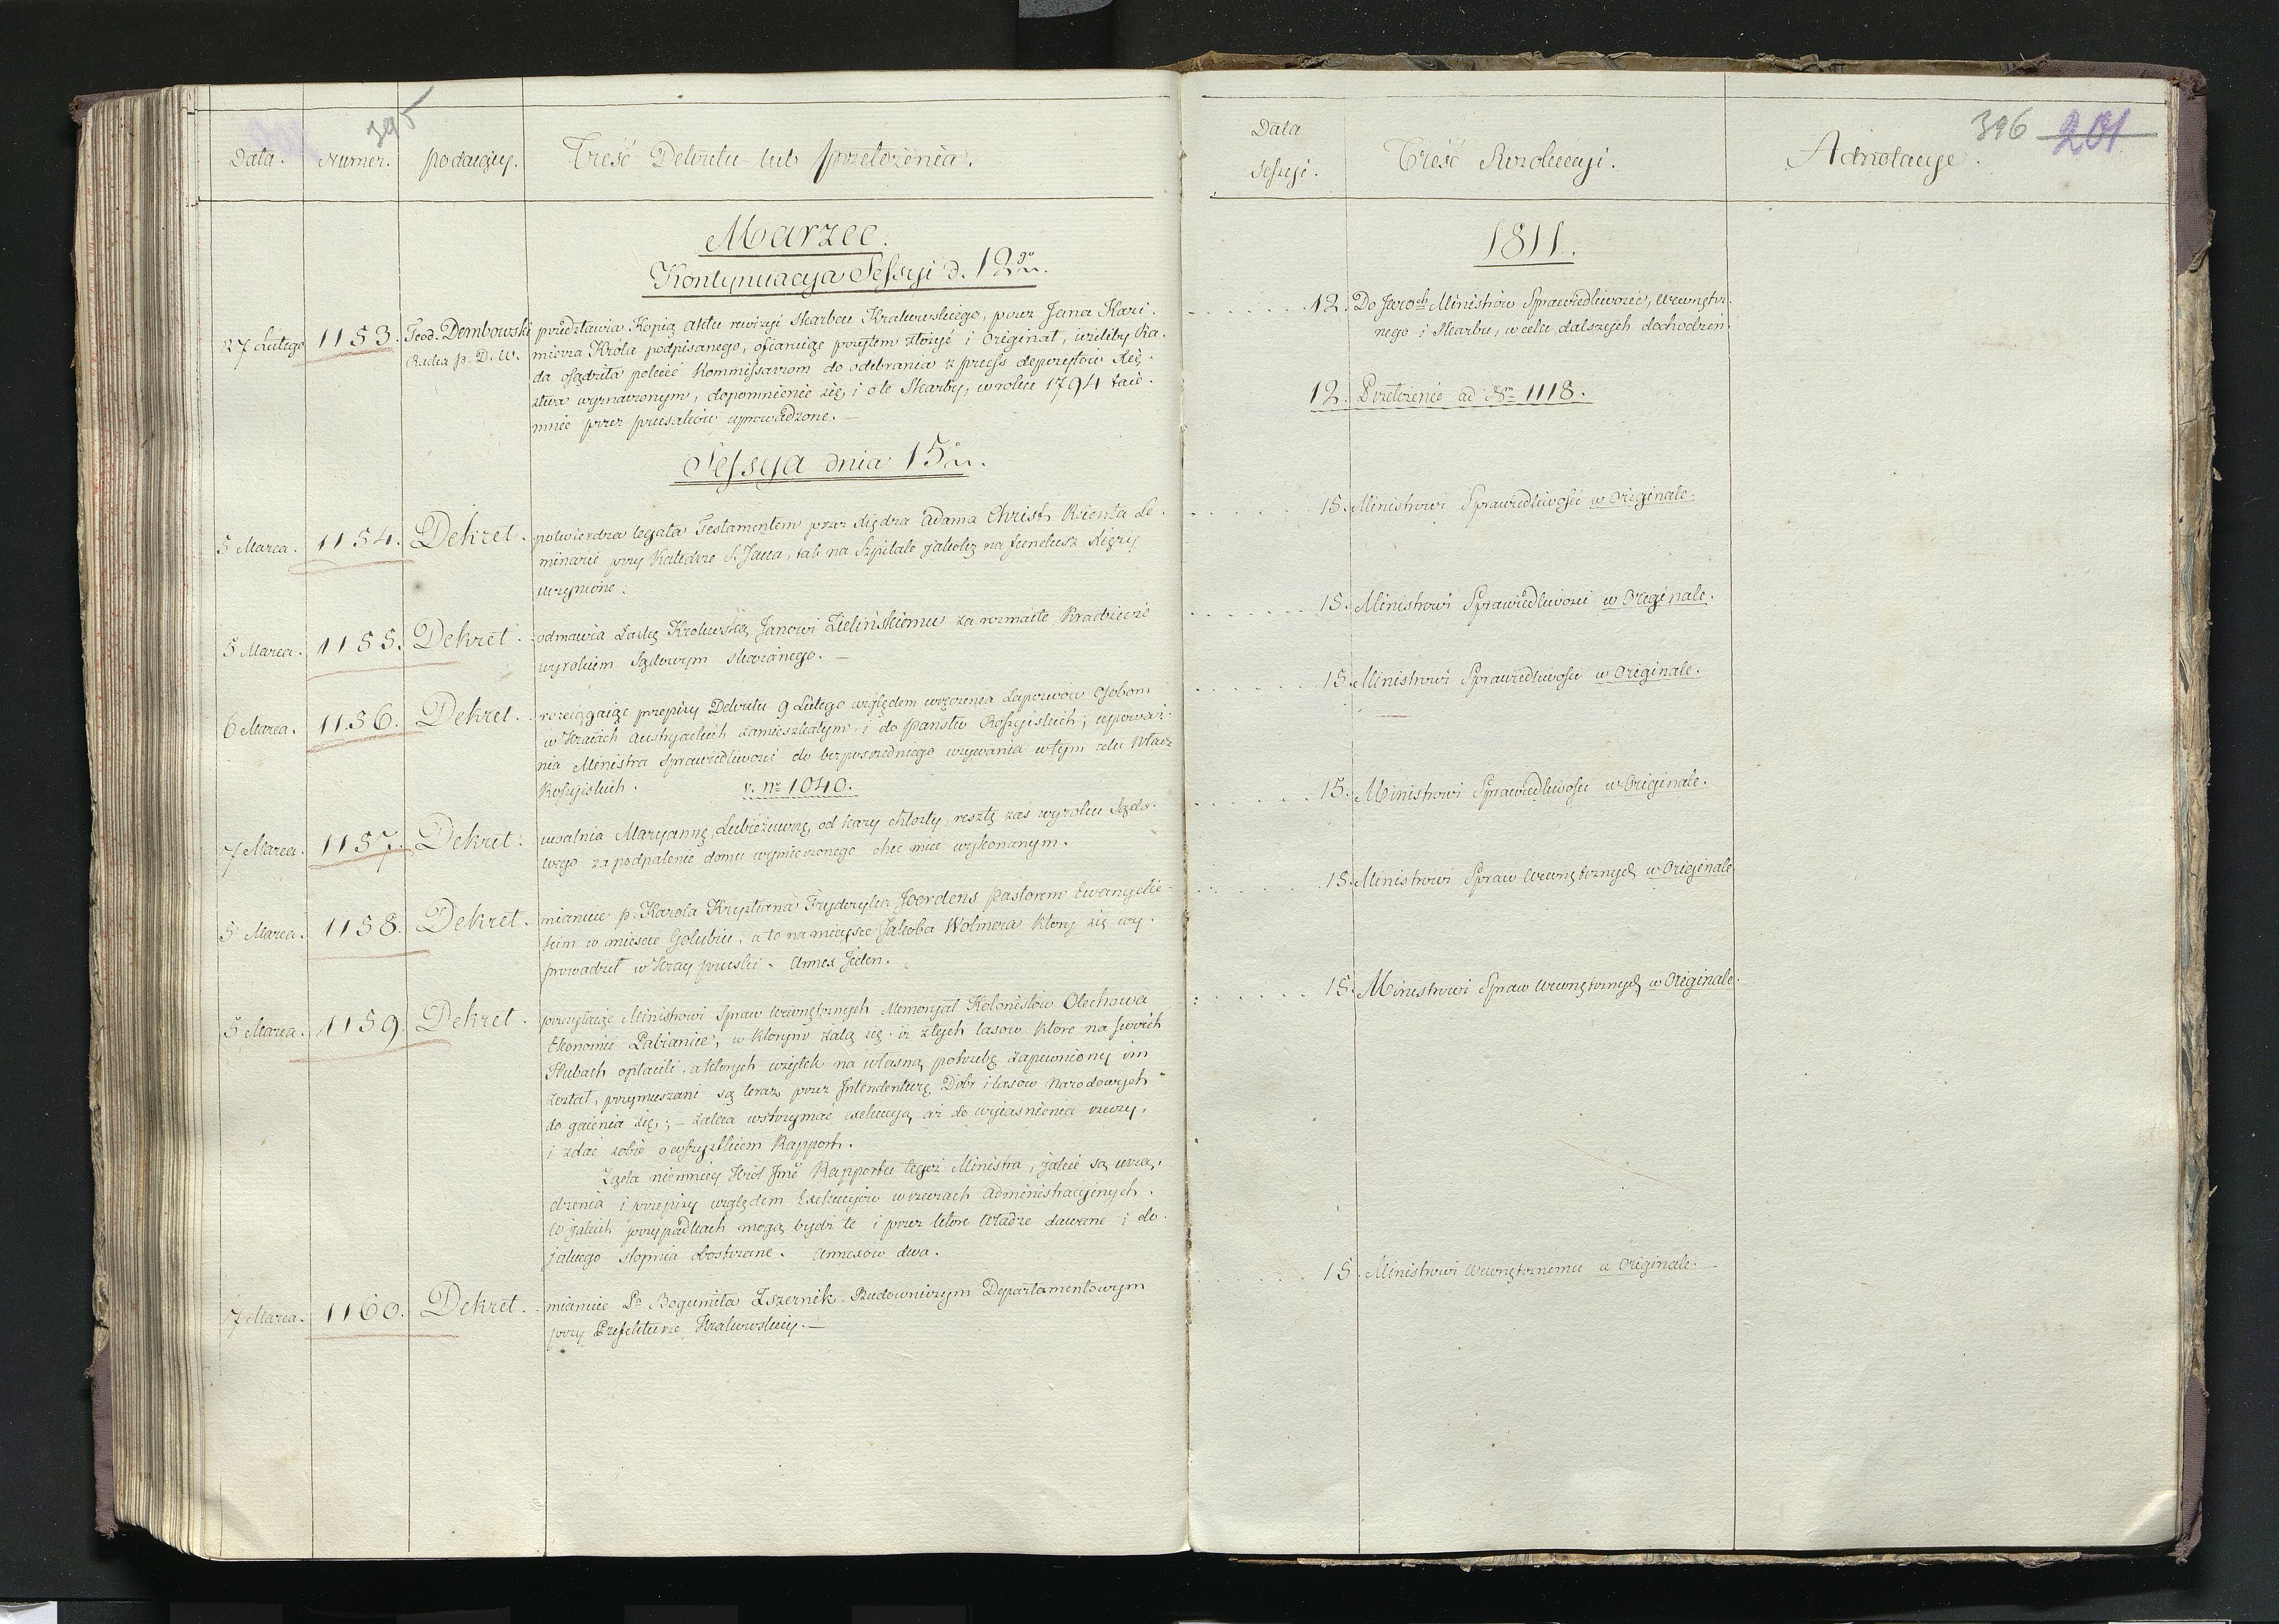 395
Data. Numer. podaiący. Treść Dekretu lub przełożenia.
Marzec.
Kontynuacya Sessyi d. 12go
27 Lutego 1153. Teod. Dembowski przedstawia Kopią aktu rewizyi Skarbcu Krakowskiego, przez Jana Kazi-
Radca p. D. W. mierza Króla podpisanego, ofiaruiąc przytem złożyć i Originał, ieżeliby Ra-
da osądziła polecić Kommissarzom do odebrania z Pruss depozytów Xię-
stwa wyznaczonym, dopomnienie się i o te Skarby, w roku 1794 taie-
mnie przez prusaków uprowadzone. —
Sessya dnia 15o
5 Marca. 1154. Dekret. potwierdza legata Testamentem przez Xiędza Adama Christ Kienta Se-
minarii przy Katedrze S. Jana, tak na Szpitale jakoteż na fundusz Xięży
uczynione.
5 Marca. 1155. Dekret. odmawia Łaskę Krolewską Janowi Zielińskiemu za rozmaite Kradzieże
wyrokiem Sądowym skazanego. —
6 Marca. 1156. Dekret. rozciągaiąc przepisy Dekretu 9 Lutego względem wręczenia Zapozwów Osobom
w Kraiach Austryackich zamieszkałym, i do Państw Rossyiskich; upoważ-
nia Ministra Sprawiedliwości do bezpośredniego wzywania w tym celu Władz
Rossyiskich. v. No 1040.
7 Marca. 1157. Dekret. uwalnia Maryannę Lubieżuwnę od kary chłosty, resztę zaś wyroku Sądo-
wego za podpalenie domu wymierzonego chce mieć wykonanym.
5 Marca. 1158. Dekret. mianuie p. Karola Krystiana Fryderyka Joerdens Pastorem Ewangelic-
kim w mieście Golubiu, a to na mieysce Jakoba Wolmera który się wy-
prowadził w Kray pruski. Annex jeden.
5 Marca. 1159. Dekret. przesyłaiąc Ministrowi Spraw Wewnętrznych Memoryał Kolonistów Olechowa
Ekonomii Pabianice, w którym żalą się iż z tych lasów które na swoich
Hubach opłacili, a których użytek na własną potrzebę zapewniony im
został, przymuszani są teraz przez Intendenturę Dóbr i lasów Narodowych
do gaienia się; — zaleca wstrzymać exekucyą aż do wyiaśnienia rzeczy,
i zdać sobie o wszystkiem Rapport.
Żąda niemniey Król Jmć Rapportu tegoż Ministra, jakie są urzą-
dzenia i przepisy względem Exekucyów w rzeczach administracyinych.
W jakich przypadkach mogą bydź te i przez które Władze dawane i do
jakiego stopnia obostrzone. Annexów dwa.
7 Marca. 1160. Dekret. mianuie Pa Bogumiła Zszernik Budowniczym Departamentowym
przy Prefekturze Krakowskiey. —
396 201
Data Sessyi. Treść Rezolucyi. Adnotacye.
1811.
12. Do JWWch Ministrów Sprawiedliwości, Wewnętrz-
nego i Skarbu, w celu dalszych dochodzeń.
12. Przełożenie ad Nm 1118.
15. Ministrowi Sprawiedliwości w Originale.
15. Ministrowi Sprawiedliwości w Originale.
15. Ministrowi Sprawiedliwości w Originale.
15. Ministrowi Sprawiedliwości w Originale.
15. Ministrowi Spraw Wewnętrznych w Originale.
15. Ministrowi Spraw Wewnętrznych w Originale.
15. Ministrowi Wewnętrznemu w Originale.